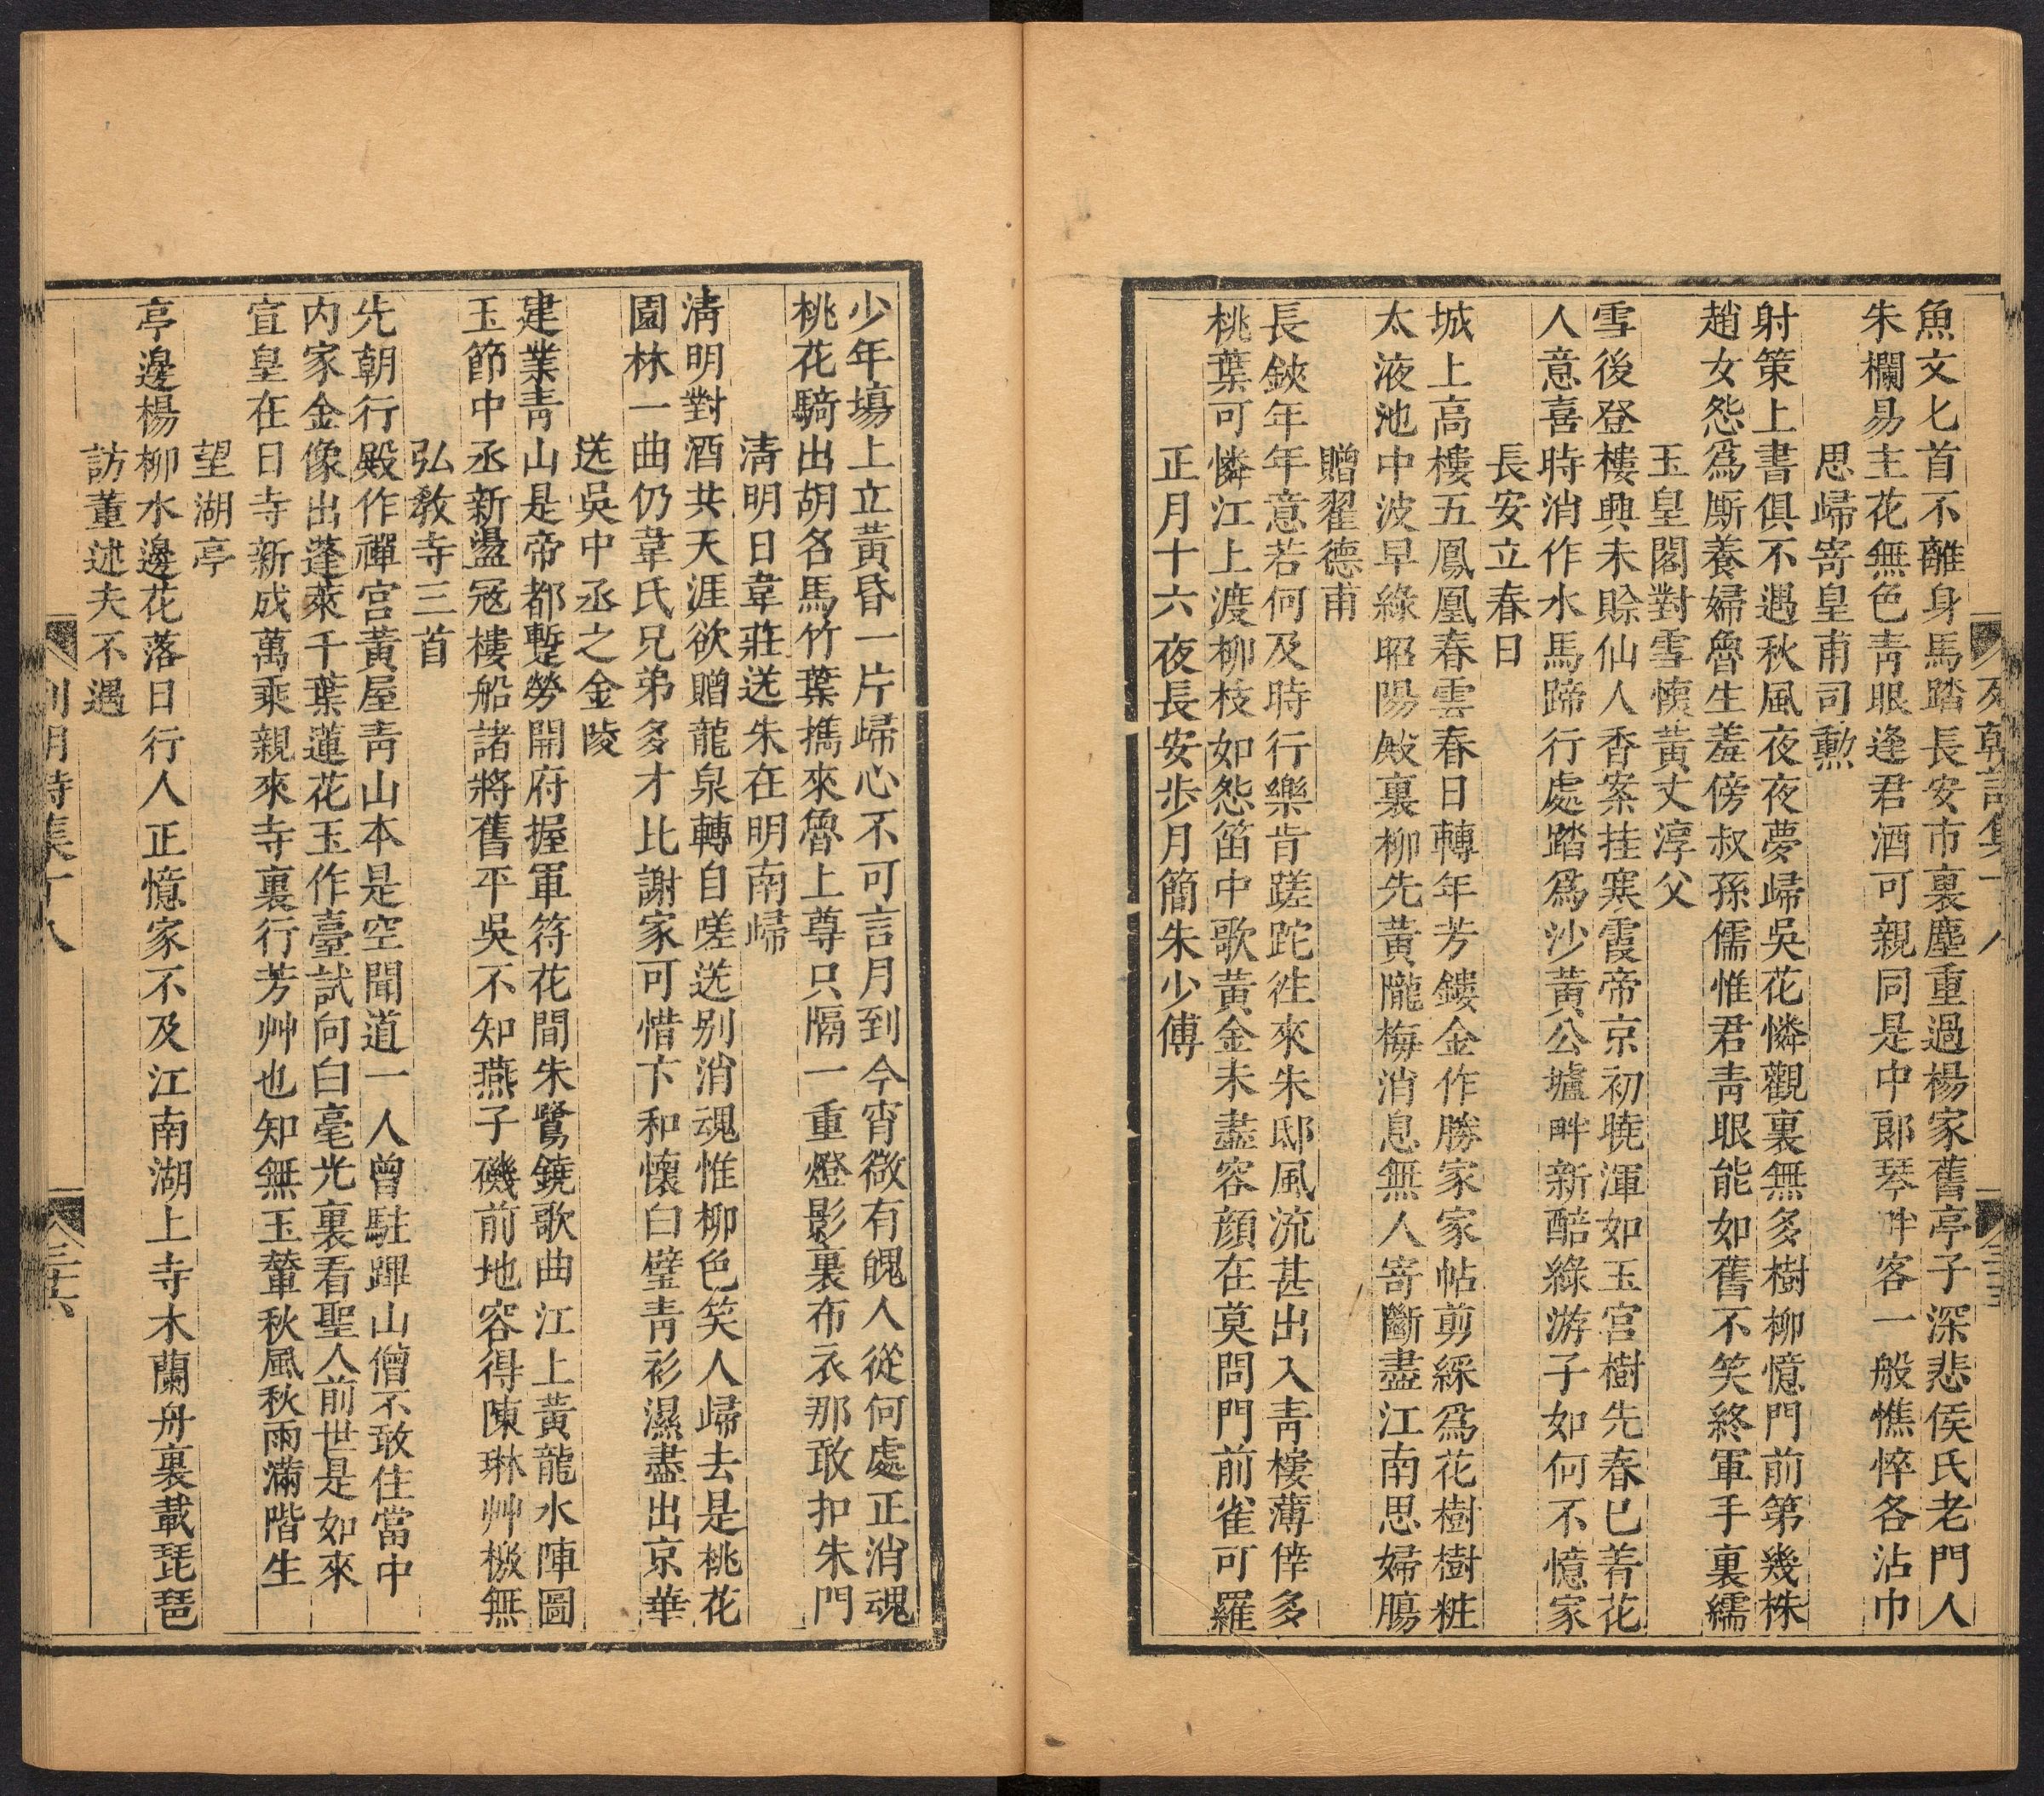 魚文匕首不離身馬踏長安市裏塵重過楊家舊亭子深悲侯氏老門人
朱欄易主花無色靑眼逢君酒可親同是中郎琴畔客一般憔悴各沾巾
思歸寄皇甫司勲
射策上書俱不遇秋風夜夜夢歸吳花憐觀裏無多樹柳憶門前第幾株
趙女怨爲厮養婦魯生羞傍叔孫儒惟君靑眼能如舊不笑終軍手裏繻
玉皇閣對雪懷黃丈淳父
雪後登樓興未賖仙人香案挂寒霞帝京初曉渾如玉宮樹先春已着花
人意喜時消作水馬蹄行處踏爲沙黃公壚畔新醅綠游子如何不憶家
長安立春日
城上高樓五鳳凰春雲春日轉年芳鏤金作勝家家帖剪綵爲花樹樹粧
太液池中波早綠昭陽殿裏柳先黃隴梅消息無人寄斷盡江南思婦腸
贈翟德甫
長鋏年年意若何及時行樂肯蹉跎徃來朱邸風流甚出入靑樓薄倖多
桃葉可憐江上渡柳枝如怨笛中歌黃金未盡容顔在莫問門前雀可羅
正月十六夜長安步月簡朱少傅
少年塲上立黃昏一片歸心不可言月到今宵微有魄人從何處正消魂
桃花騎出胡名馬竹葉擕來魯上尊只隔一重燈影裏布衣那敢扣朱門
淸明日韋莊送朱在明南歸
淸明對酒共天涯欲贈龍泉轉自嗟送别消魂惟柳色笑人歸去是桃花
園林一曲仍韋氏兄弟多才比謝家可惜卞和懷白璧靑衫濕盡出京華
送吳中丞之金陵
建業靑山是帝都蹔勞開府握軍符花間朱鷺鐃歌曲江上黃龍水陣圖
玉節中丞新盪寇樓船諸將舊平吳不知燕子磯前地容得陳琳艸檄無
弘敎寺三首
先朝行殿作禪宮黃屋靑山本是空聞道一人曾駐蹕山僧不敢住當中
内家金像出蓬萊千葉蓮花玉作臺試向白毫光裏看聖人前世是如來
宣皇在日寺新成萬乘親來寺裏行芳艸也知無玉輦秋風秋雨滿階生
望湖亭
亭邊楊柳水邊花落日行人正憶家不及江南湖上寺木蘭舟裏載琵琶
訪董述夫不遇